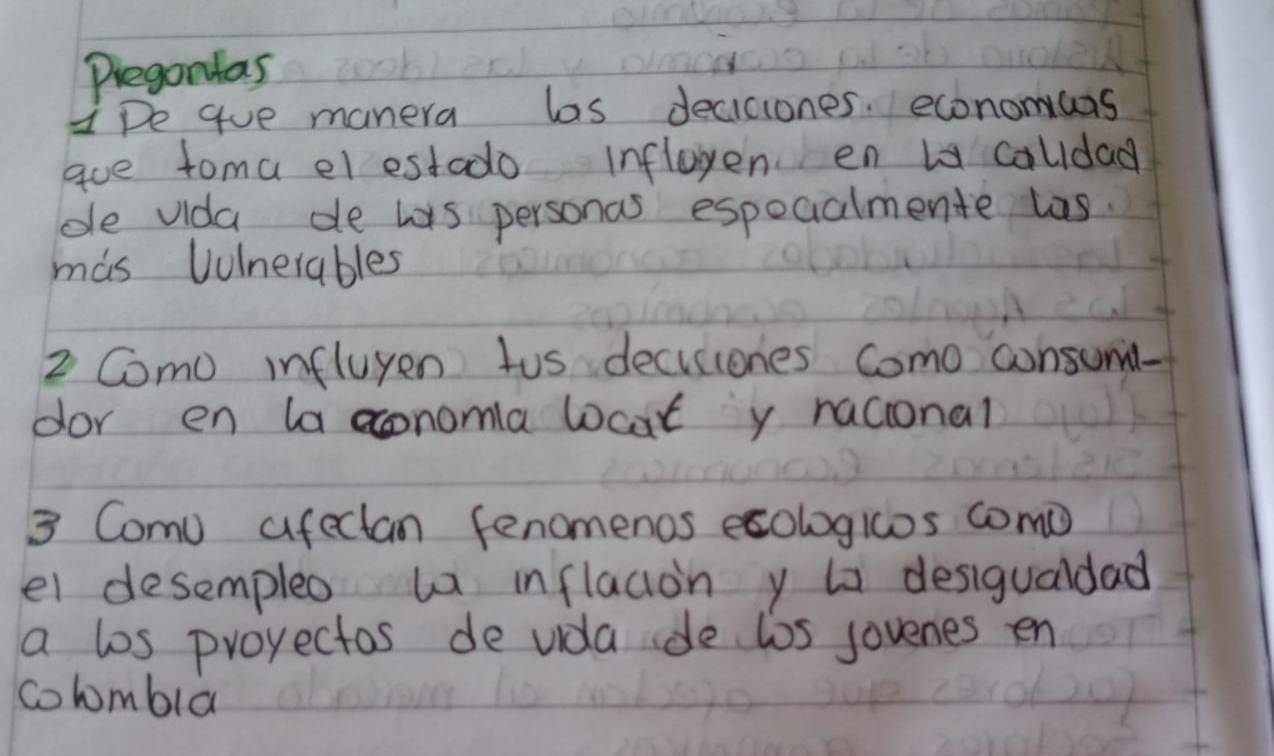 Pregontas
1 De que manera los deciciones. economicas
que toma el estado influyen en la calidad
de vida de las personas especialmente las
más Vulnerables
2 Como influyen tus deciciones como consumi-
dor en la economia local y nacional
3 Como afectan fenomenos ecologicos como
el desempleo la inflación y la desigualdad
a los proyectos de vida de los jovenes en
colombia